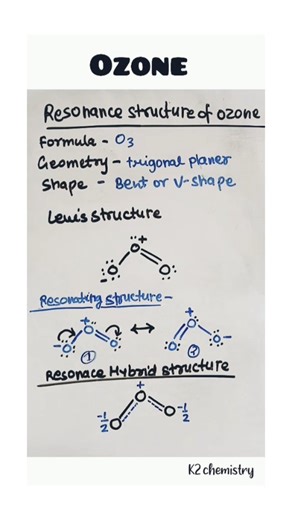 OZONE
Resonance structure of ozone
Formula - O3
Geometry - trigonal planer
Shape - Bent or V-shape
Lewis structure
+
- O O O
Resonating structure -
+ +
- O O O ↔ O O O -
1 2
Resonace Hybrid structure
+
-1/2 O O O -1/2
K2 chemistry